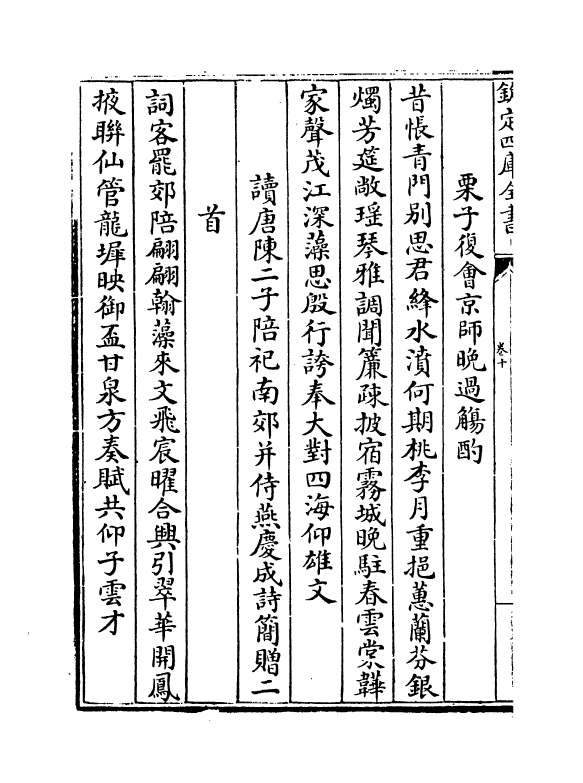 欽定四庫全書
卷十
栗子復會京師晚過觴酌
昔悵青門别思君絳水濆何期桃李月重挹蕙蘭芬銀
燭芳筵敞瑶琴雅調聞簾疎披宿霧城晚駐春雲棠韡
家聲茂江深藻思殷行誇奉大對四海仰雄文
讀唐陳二子陪祀南郊并侍燕慶成詩簡贈二
首
詞客罷郊陪翩翩翰藻來文飛宸曜合興引翠華開鳳
掖聨仙管龍墀映御盃甘泉方奏賦共仰子雲才